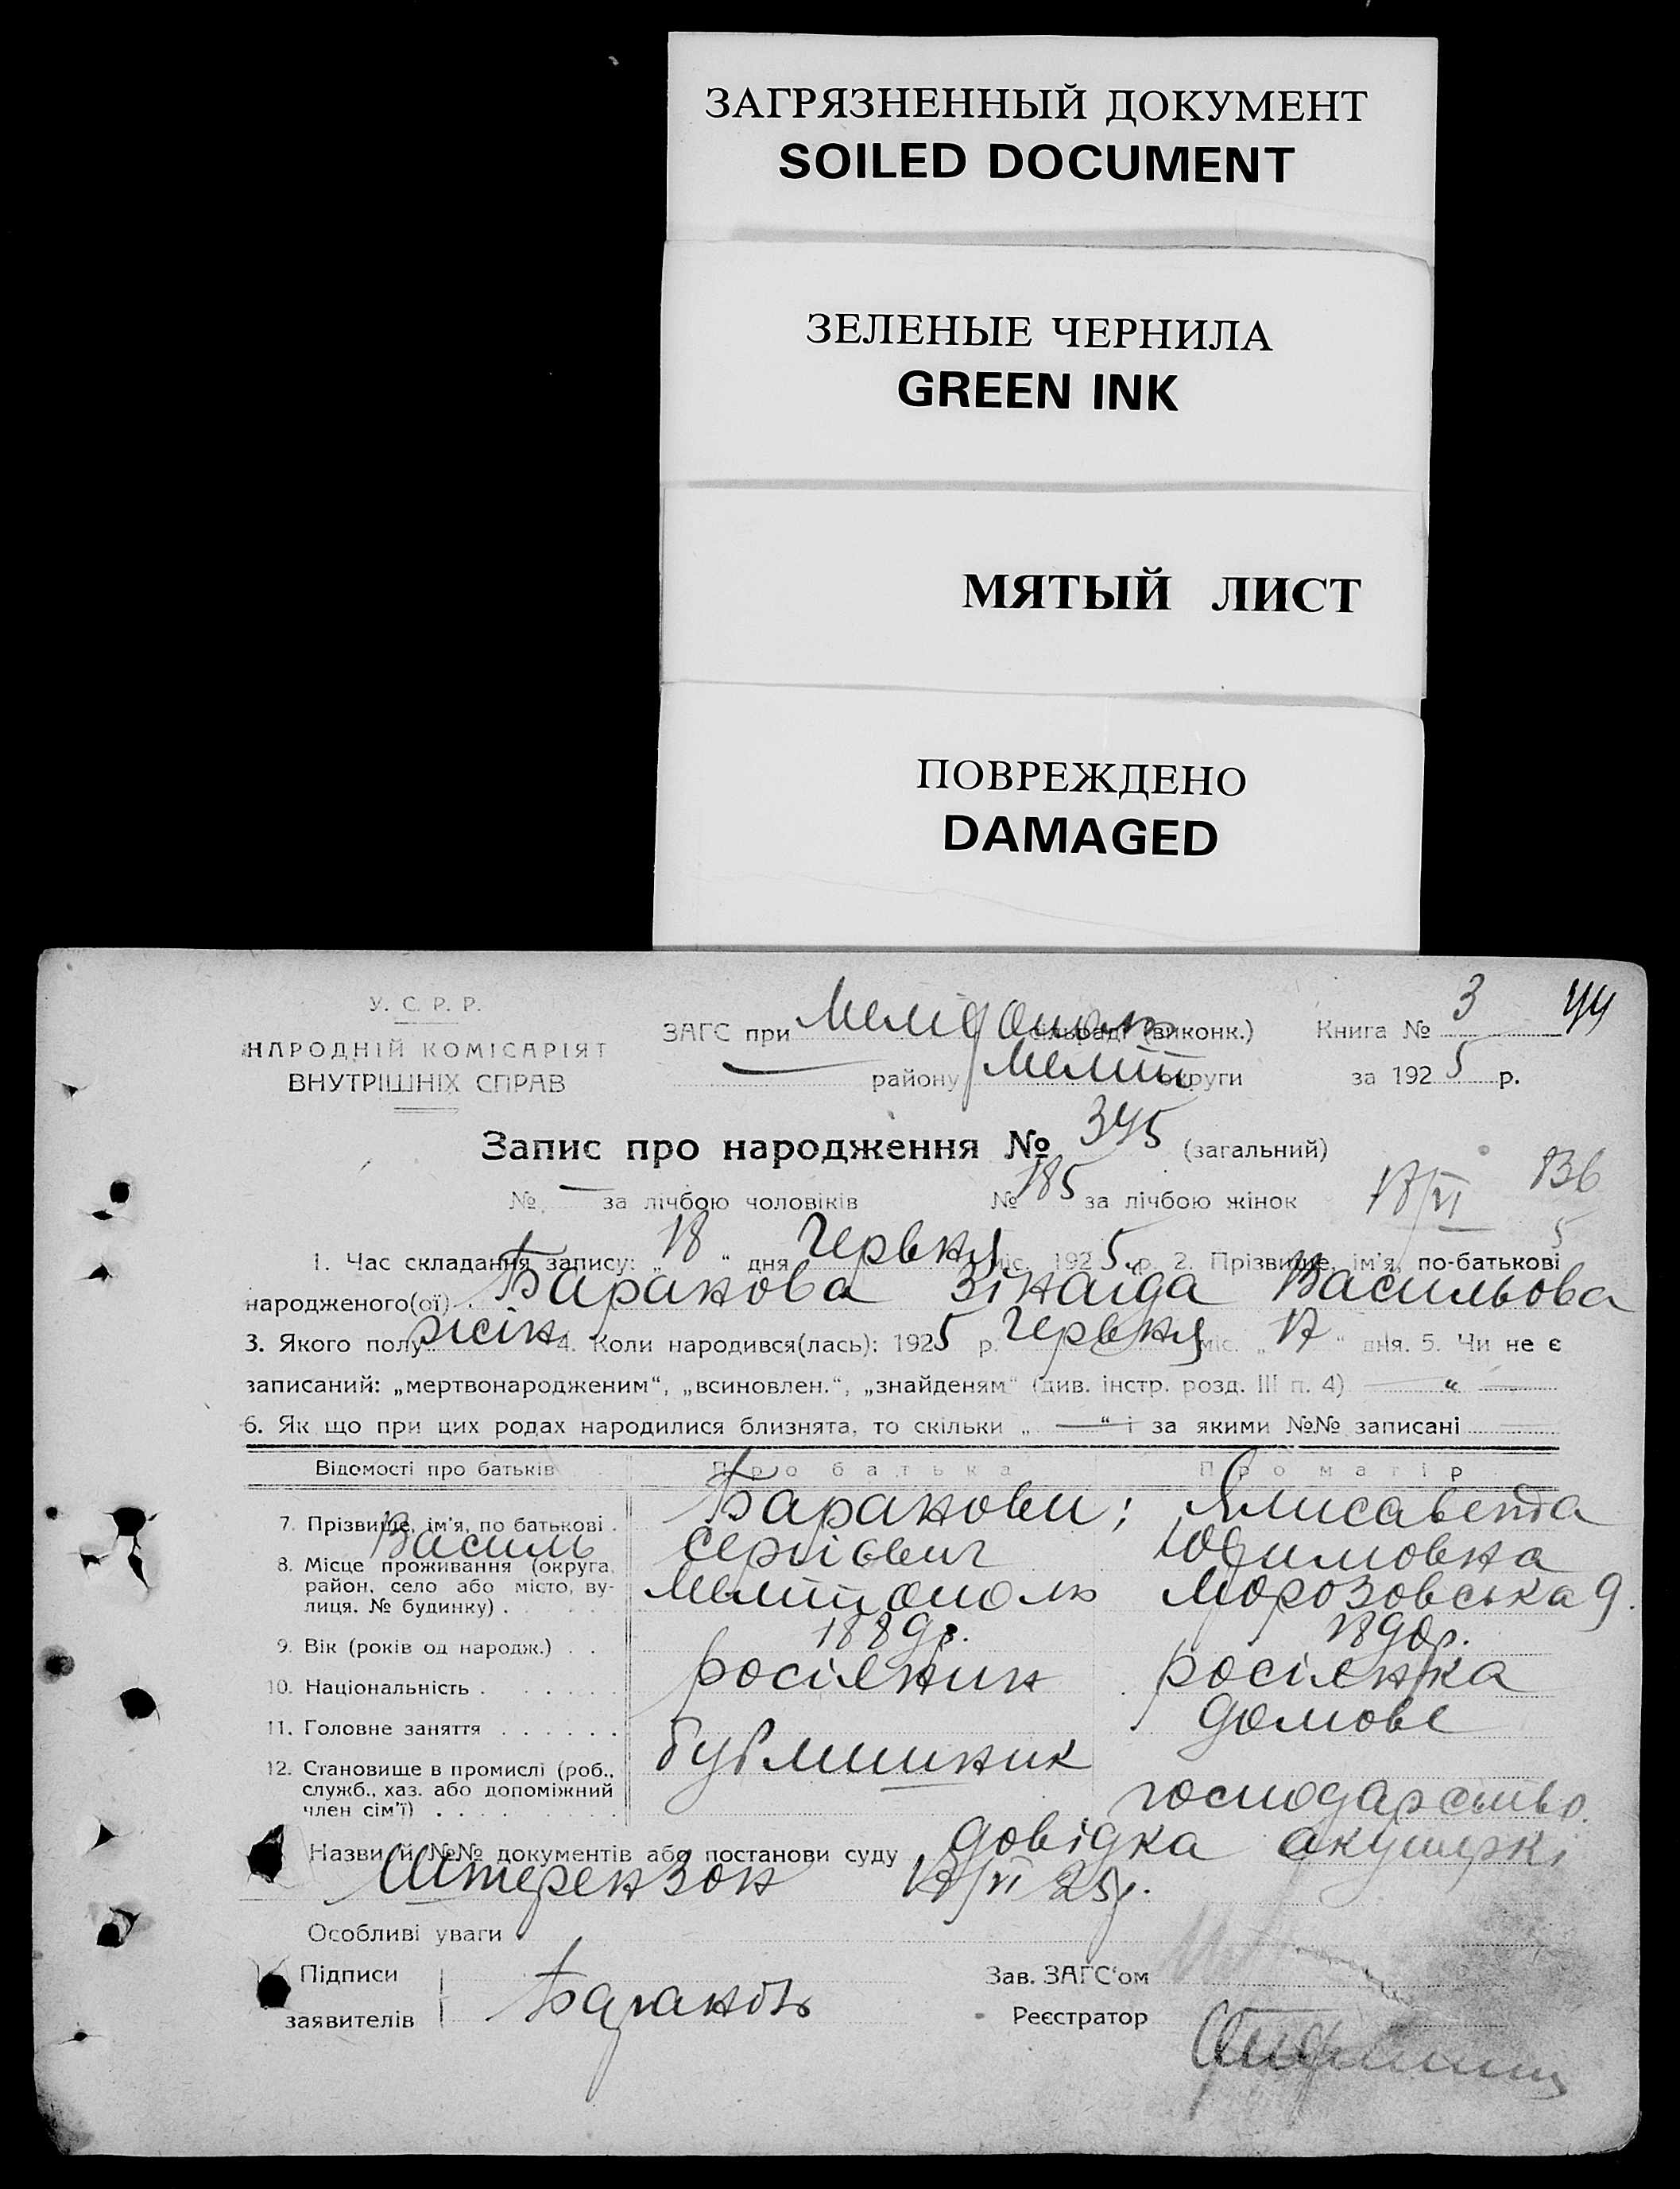 ЗАГРЯЗНЕННЫЙ ДОКУМЕНТ
SOILED DOCUMENT
ЗЕЛЕНЫЕ ЧЕРНИЛА
GREEN INK
МЯТЫЙ ЛИСТ
ПОВРЕЖДЕНО
DAMAGED
У. С. Р. Р.
НАРОДНІЙ КОМІСАРІЯТ
ВНУТРІШНІХ СПРАВ
ЗАГС при сільраді (виконк.) Книга № 3 44
району Меліт округи за 1925 р.
Запис про народження № 345 (загальний)
№ — за лічбою чоловіків № 185 за лічбою жінок 17/VI 136
5
1. Час складання запису: „ 18 “ дня Червня міс. 1925 р. 2. Прізвище, ім'я, по-батькові
народженого(ої) Баранова Зінаїда Васильова
3. Якого полу жісін 4. Коли народився(лась): 1925 р. Червня міс. „ 17 “ дня. 5. Чи не є
записаний: „мертвонародженим“, „всиновлен.“, „знайденям“ (див. інстр. розд. III п. 4) — “ —
6. Як що при цих родах народилися близнята, то скільки „ — “ і за якими №№ записані
Відомості про батьків Про батька Про матір
7. Прізвище, ім'я, по батькові . Баранови; Ялисавета
Василь Сергієвич Юхимовна
8. Місце проживання (округа, район, село або місто, вулиця, № будинку) . Мелітополь Морозовська 9.
9. Вік (років од народж.) . . 1889р. 1890р.
10. Національність . росіянин росіянка
11. Головне заняття . . . . . . домове
12. Становище в промислі (роб., служб., хаз. або допоміжний член сім'ї) . . . . бубличник господарство.
Назви й №№ документів або постанови суду довідка акушерки
Штерензон 17/VI 25р.
Особливі уваги
Підписи
заявителів Баранов
Зав. ЗАГС'ом
Реєстратор